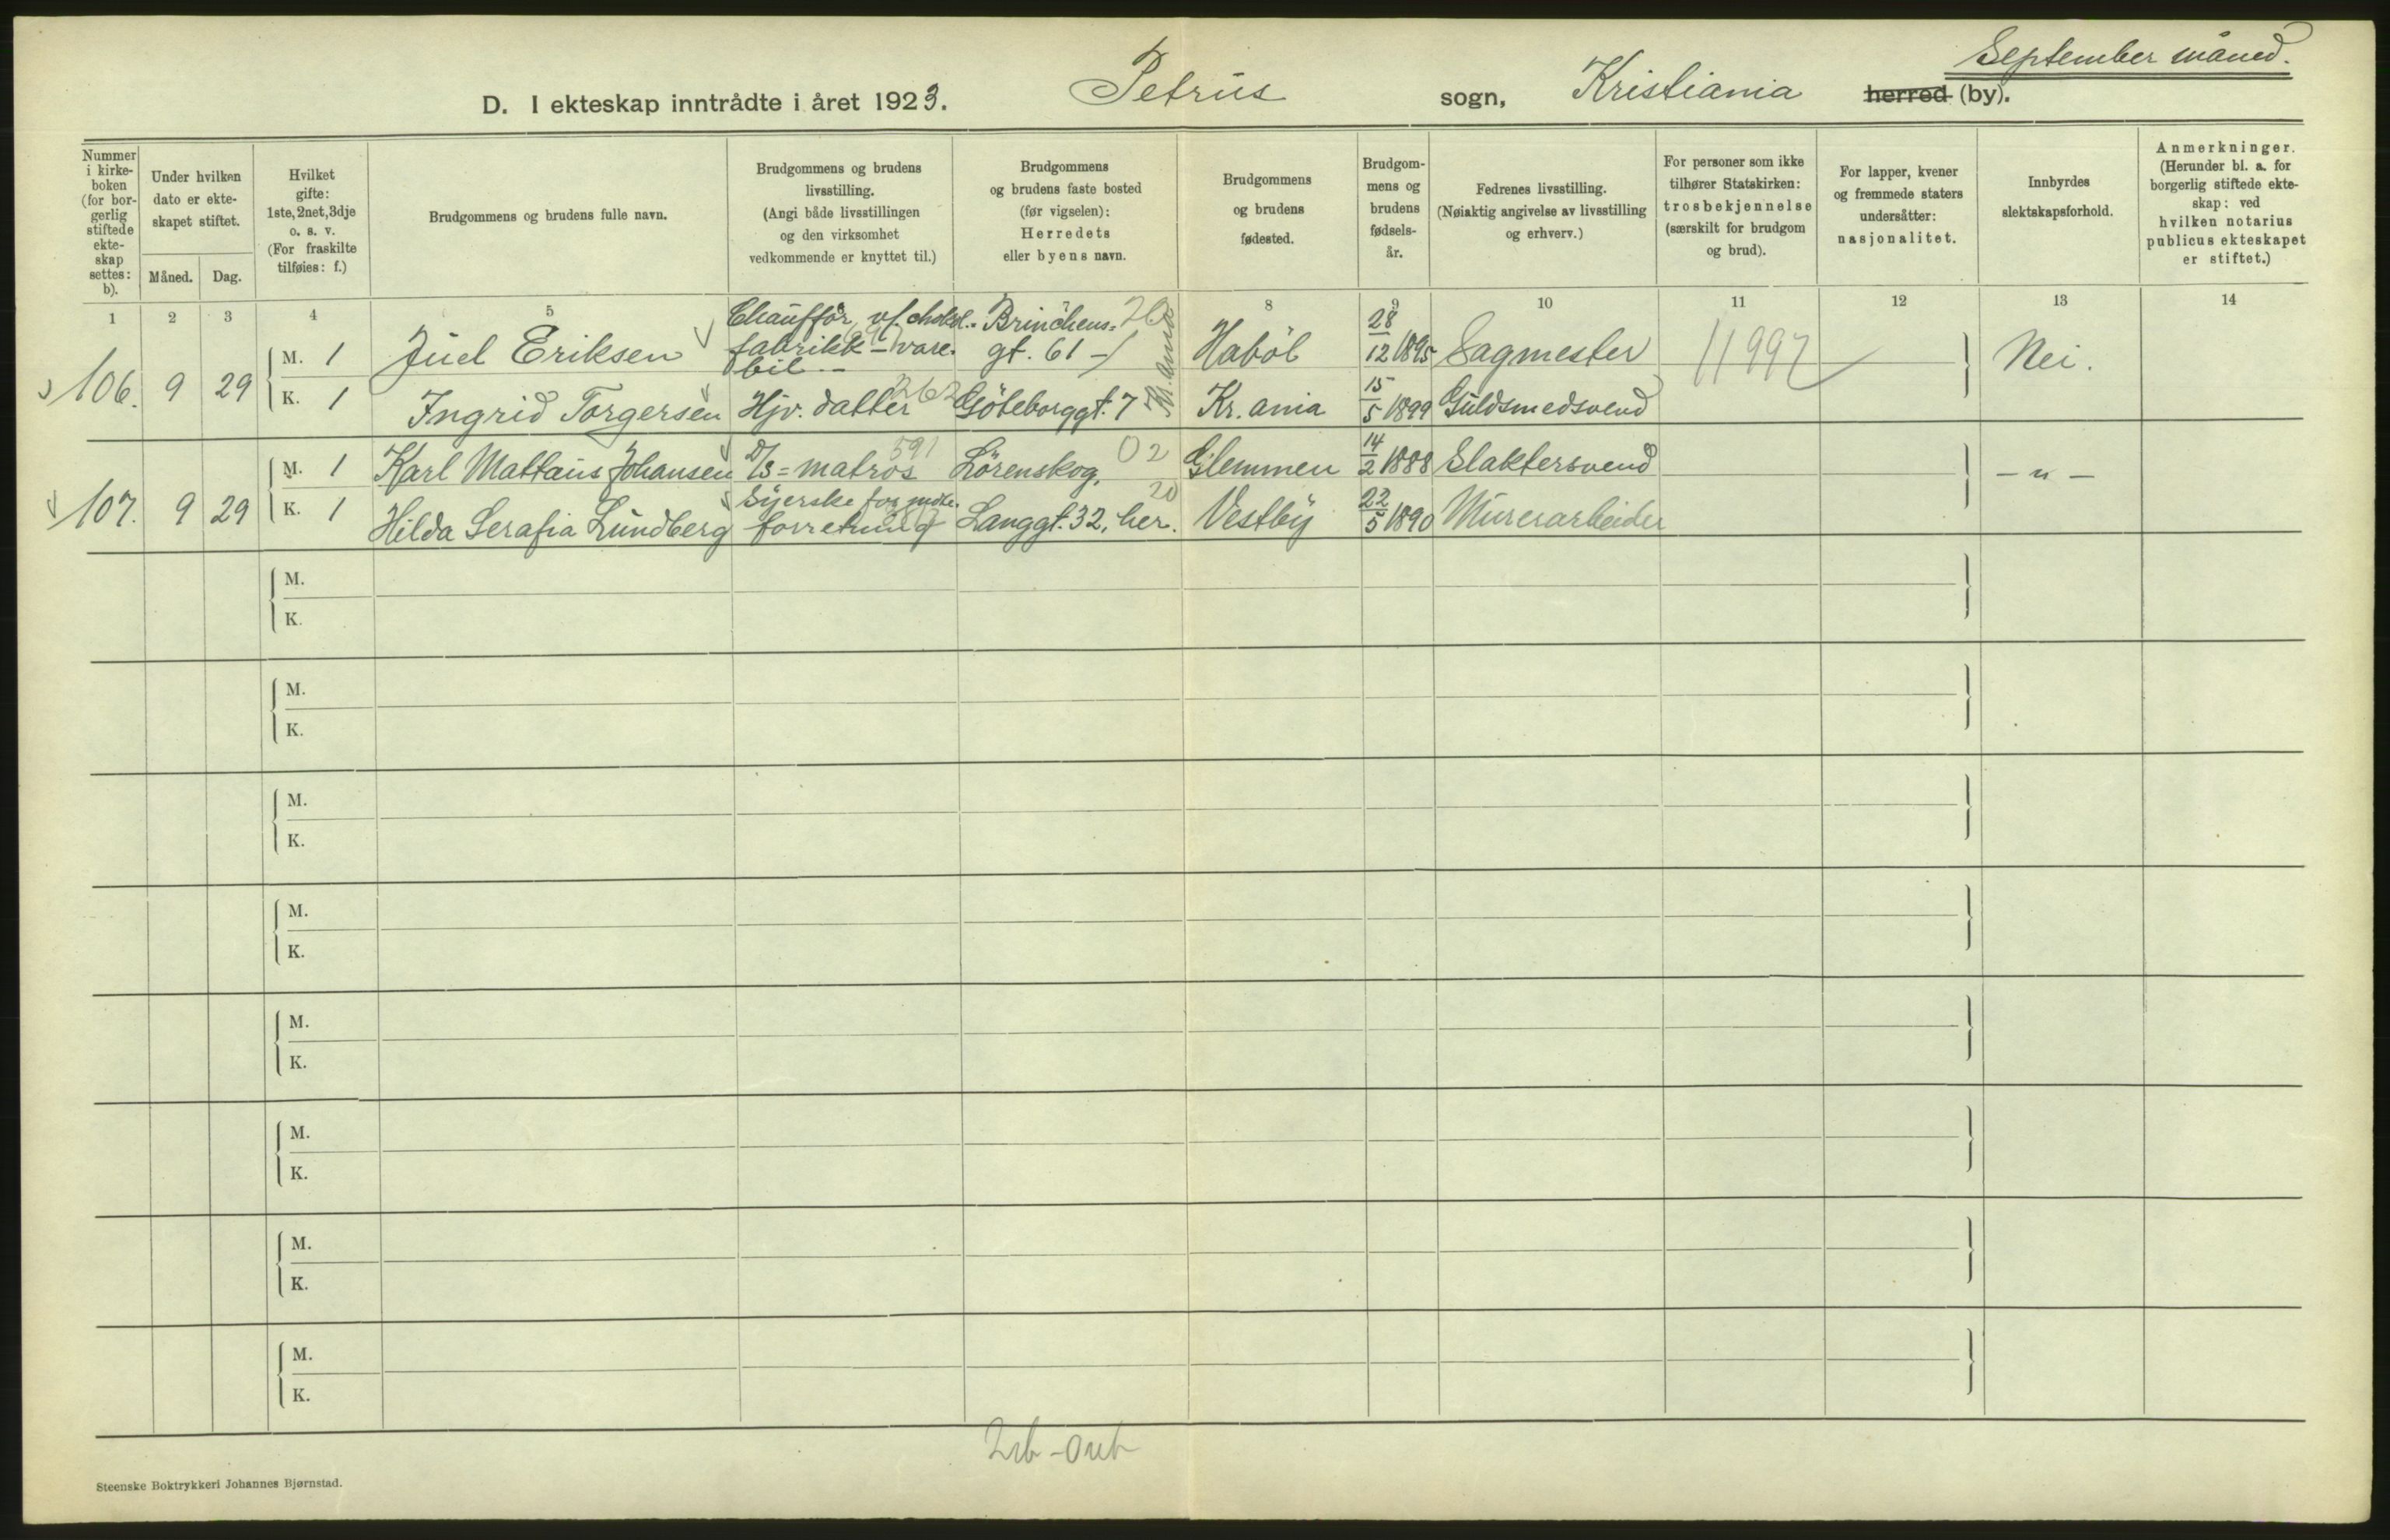 September måned.
D. I ekteskap inntrådte i året 1923. Petrus sogn, Kristiania herred (by).
Nummer i kirke-boken (for bor-gerlig stiftede ekte-skap settes: b).
Under hvilken dato er ekte-skapet stiftet.
Måned. Dag.
Hvilket gifte: 1ste, 2net, 3dje o. s. v. (For fraskilte tilføies: f.)
Brudgommens og brudens fulle navn.
Brudgommens og brudens livsstilling. (Angi både livsstillingen og den virksomhet vedkommende er knyttet til.)
Brudgommens og brudens faste bosted (før vigselen): Herredets eller byens navn.
Brudgommens og brudens fødested.
Brudgom-mens og brudens fødsels-år.
Fedrenes livsstilling. (Nøiaktig angivelse av livsstilling og erhverv.)
For personer som ikke tilhører Statskirken: trosbekjennelse (særskilt for brudgom og brud).
For lapper, kvener og fremmede staters undersåtter: nasjonalitet.
Innbyrdes slektskapsforhold.
Anmerkninger. (Herunder bl. a. for borgerlig stiftede ekte-skap: ved hvilken notarius publicus ekteskapet er stiftet.)
1 2 3 4 5 8 9 10 11 12 13 14
106. 9 29
M. 1 Juel Eriksen Chauffør v/ chokol. fabrikk - vare-bil. - Brinchens= gt. 61 - 20 Habøl 28/12 1895 Sagmester 11997 Nei.
K. 1 Ingrid Torgersen Hjv. datter 262 Göteborggt. 7 Kr.ania Kr.ania 15/5 1899 Guldsmedsvend
107. 9 29
M. 1 Karl Mattæus Johansen D/S=matros 591 Lørenskog. 02 Glemmen 14/2 1888 Slaktersvend - " -
K. 1 Hilda Serafia Lundberg Syerske for forretning Langgt. 32, her. 20 Vestby 22/5 1890 Murerarbeider
M.
K.
M.
K.
M.
K.
M.
K.
M.
K.
M.
K.
M.
K.
M.
K.
Steenske Boktrykkeri Johannes Bjørnstad.